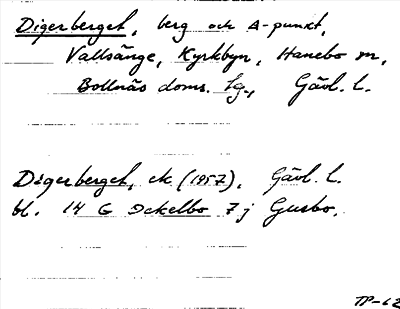 Digerberget, berg och A-punkt,
Vallsänge, Kyrkbyn, Hanebo sn,
Bollnäs doms. lg., Gävl. l.
Digerberget, ek (1957), Gävl. l.
bl. 14 G Ockelbo 7 j Gusbo.
TP-62